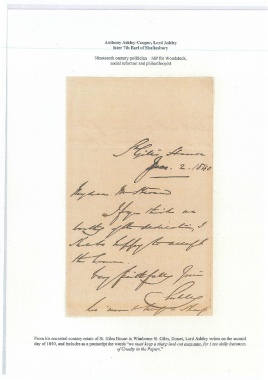 Anthony Ashley-Cooper, Lord Ashley
later 7th Earl of Shaftesbury
Nineteenth century politician - MP for Woodstock,
social reformer and philanthropist
St Giles House
Jan. 2. 1840
My dear
If you think me
worthy of the dedication, I
shall be happy to accept
the honor.
Very faithfully yours
Ashley
From his ancestral country estate of St. Giles House in Wimborne St. Giles, Dorset, Lord Ashley writes on the second
day of 1840, and includes as a postscript the words "we must keep a sharp look-out for I see daily instances
of Cruelty in the Papers."